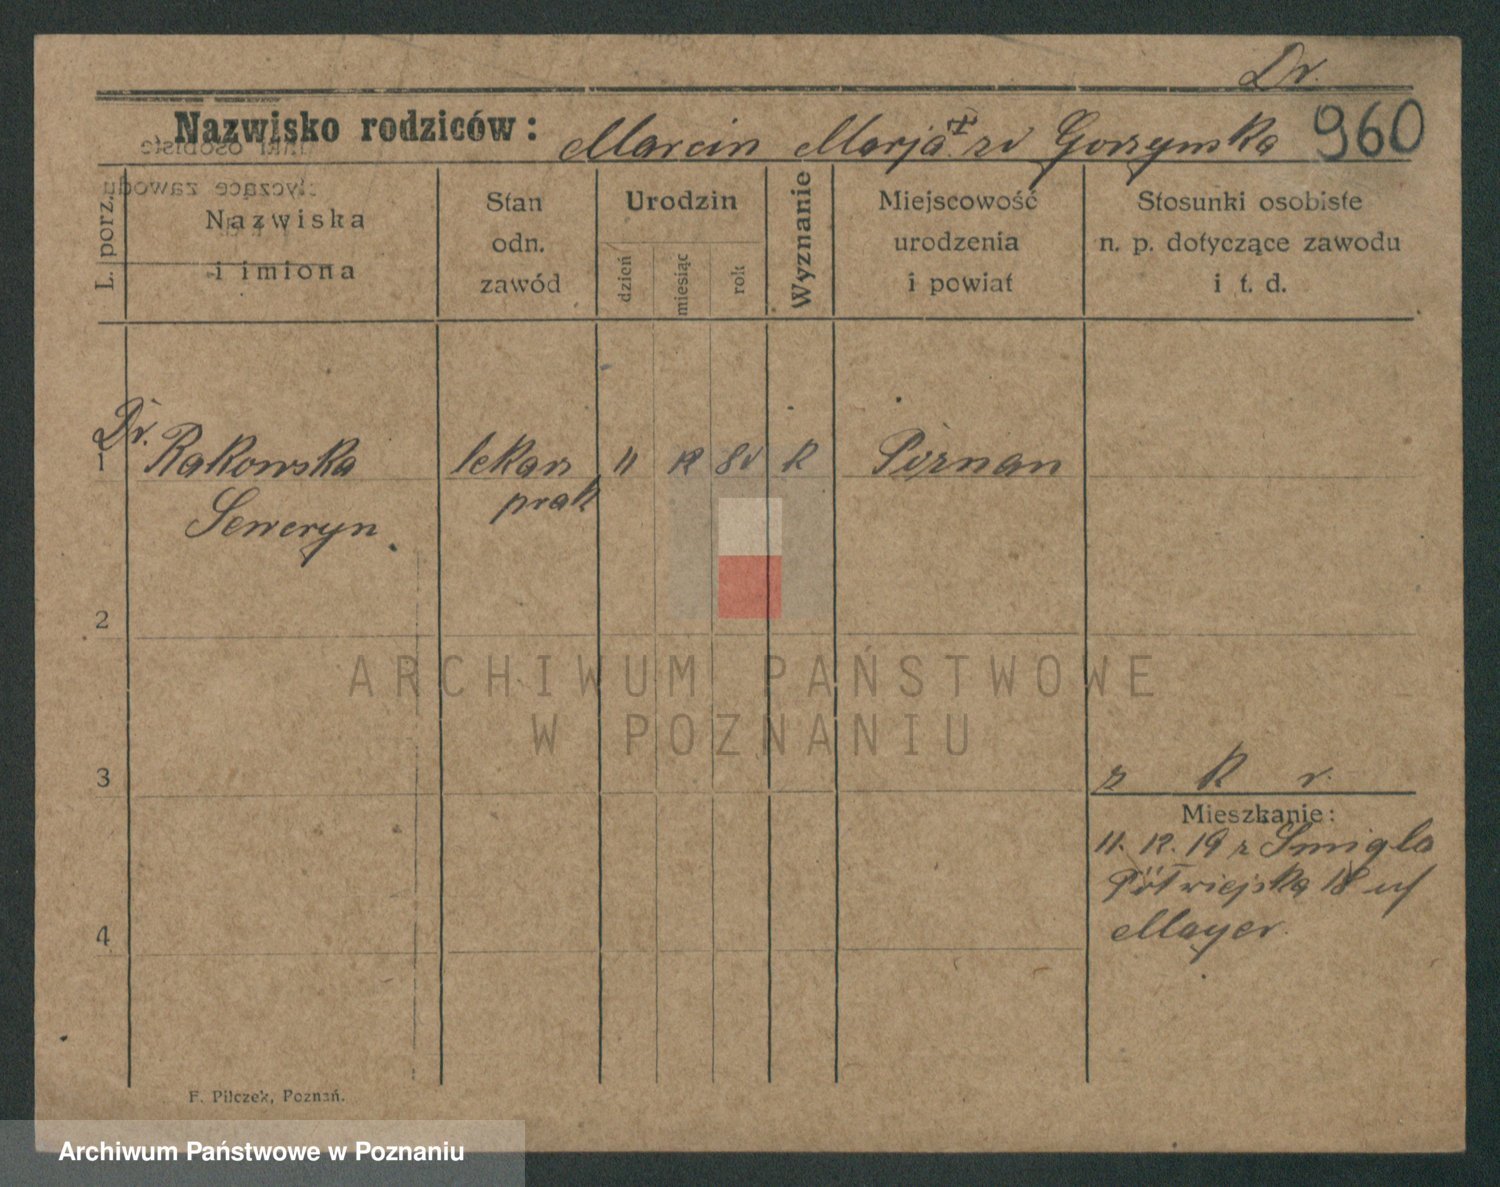 Dr.
Nazwisko rodziców: Marcin Marja zd Gorzynska 960
L. porz.
Nazwiska
i imiona
Stan
odn.
zawód
Urodzin
dzień
miesiąc
rok
Wyznanie
Miejscowość
urodzenia
i powiat
Stosunki osobiste
n. p. dotyczące zawodu
i t. d.
Dr.
1 Rakowska lekarz 11 12 K Poznan
prak
Seweryn
2
ARCHIWUM PAŃSTWOWE
W POZNANIU
3
z k r.
Mieszkanie:
11. 12. 19 z Smigla
Półwiejska 18
Mayer
4
F. Pilczek, Poznań.
Archiwum Państwowe w Poznaniu